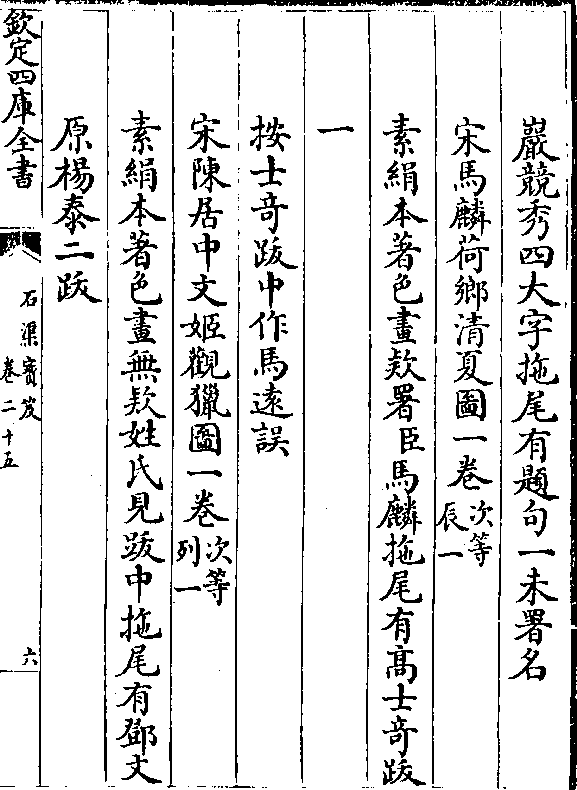 巖競秀四大字拖尾有題句一未署名
宋馬麟荷鄉清夏圖一卷次等辰一
素絹本著色畫款署臣馬麟拖尾有髙士竒跋
一
按士竒跋中作馬逺誤
宋陳居中文姬觀獵圖一卷次等列一
素絹本著色畫無款姓氏見跋中拖尾有鄧文
原楊泰二跋
欽定四庫全書
石渠寳笈
卷二十五
六